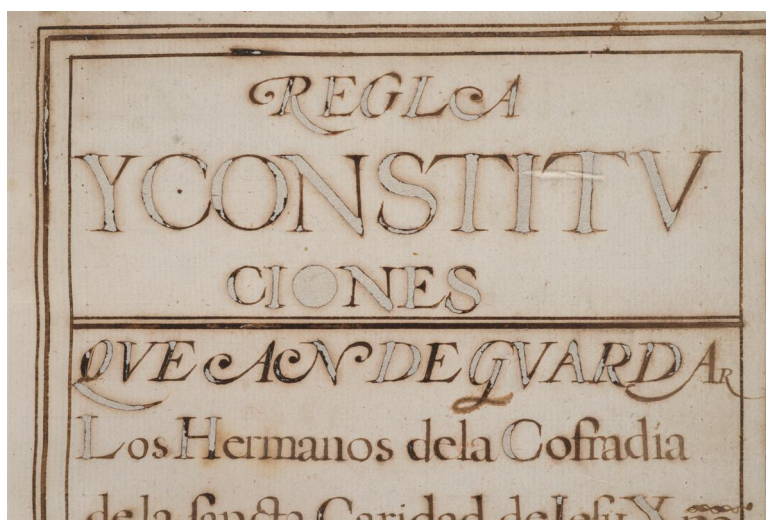 REGLA
Y CONSTITV
CIONES
QVE AN DE GVARDAR
Los Hermanos dela Cofradia
de la sancta Caridad de Iesu X